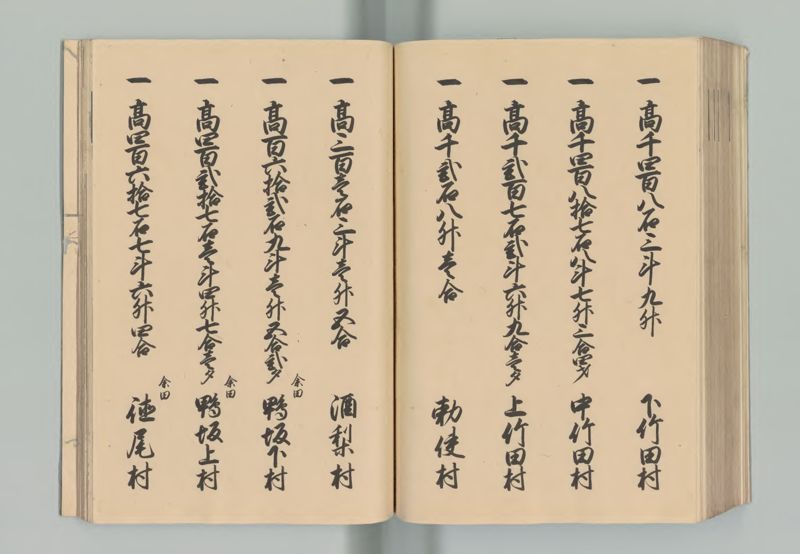 一 高千四百八石三斗九升 下竹田村
一 高千四百八拾七石八斗七升三合四夕 中竹田村
一 高千弐百七石弐斗六升九合壱夕 上竹田村
一 高千弐石八升壱合 勅使村
一 高三百壱石三斗壱升五合 酒梨村
一 高百六拾弐石九斗壱升五合弐夕 余田 鴨坂下村
一 高四百弐拾七石壱斗四升七合壱夕 余田 鴨坂上村
一 高四百六拾七石七斗六升四合 余田 徳尾村